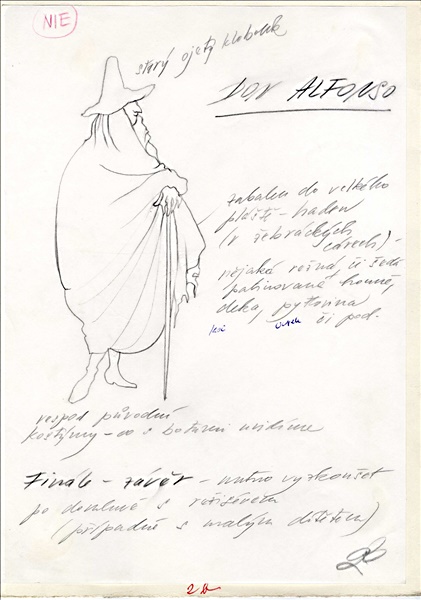 NIE
starý ojetý klobouk
DON ALFONSO
zabalen do velkého
pláště - haden
(v žebráckých
cárech) -
nějaká režná, či šedá
patinovaně houně,
deka, pytlovina
či pod.
vespod původní
kostýmy - co s botami uvidíme
Finále - závěr - nutno vyzkoušet
po domluvě s režisérem
(případně s malým dítětem)
2a